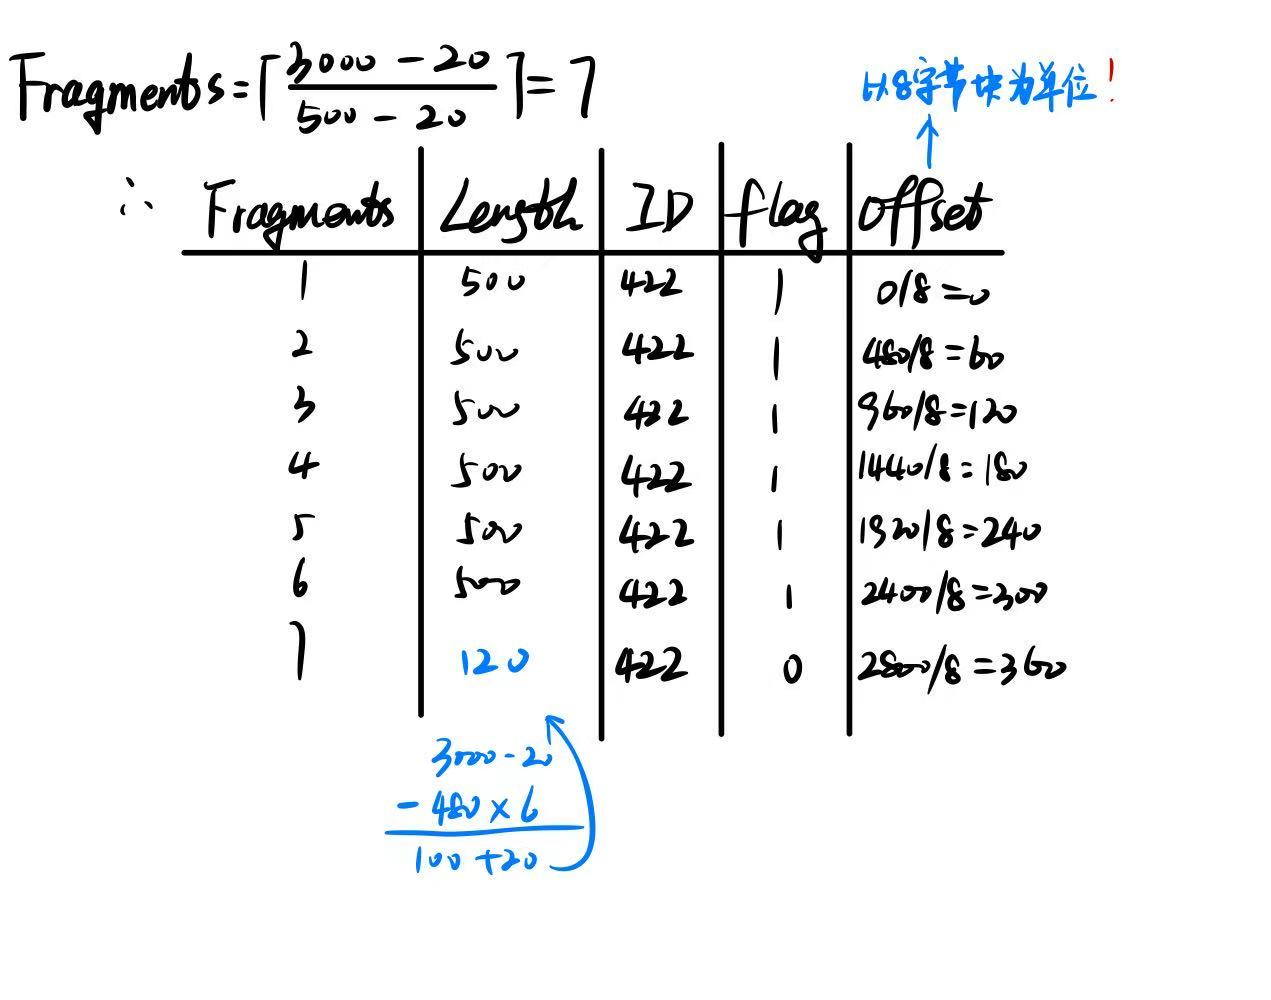 Fragments = ⌈(3000 - 20)/(500 - 20)⌉ = 7
以8字节块为单位！
∴ Fragments Length ID flag offset
1 500 422 1 0/8=0
2 500 422 1 480/8=60
3 500 422 1 960/8=120
4 500 422 1 1440/8=180
5 500 422 1 1920/8=240
6 500 422 1 2400/8=300
7 120 422 0 2800/8=360
3000-20
- 480×6
100+20